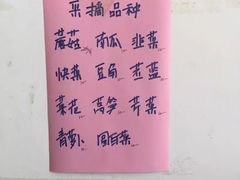 菜摘品种
蘑菇 南瓜 韭菜
快菜 豆角 苤蓝
菜花 莴笋 芹菜
青萝卜 圆白菜